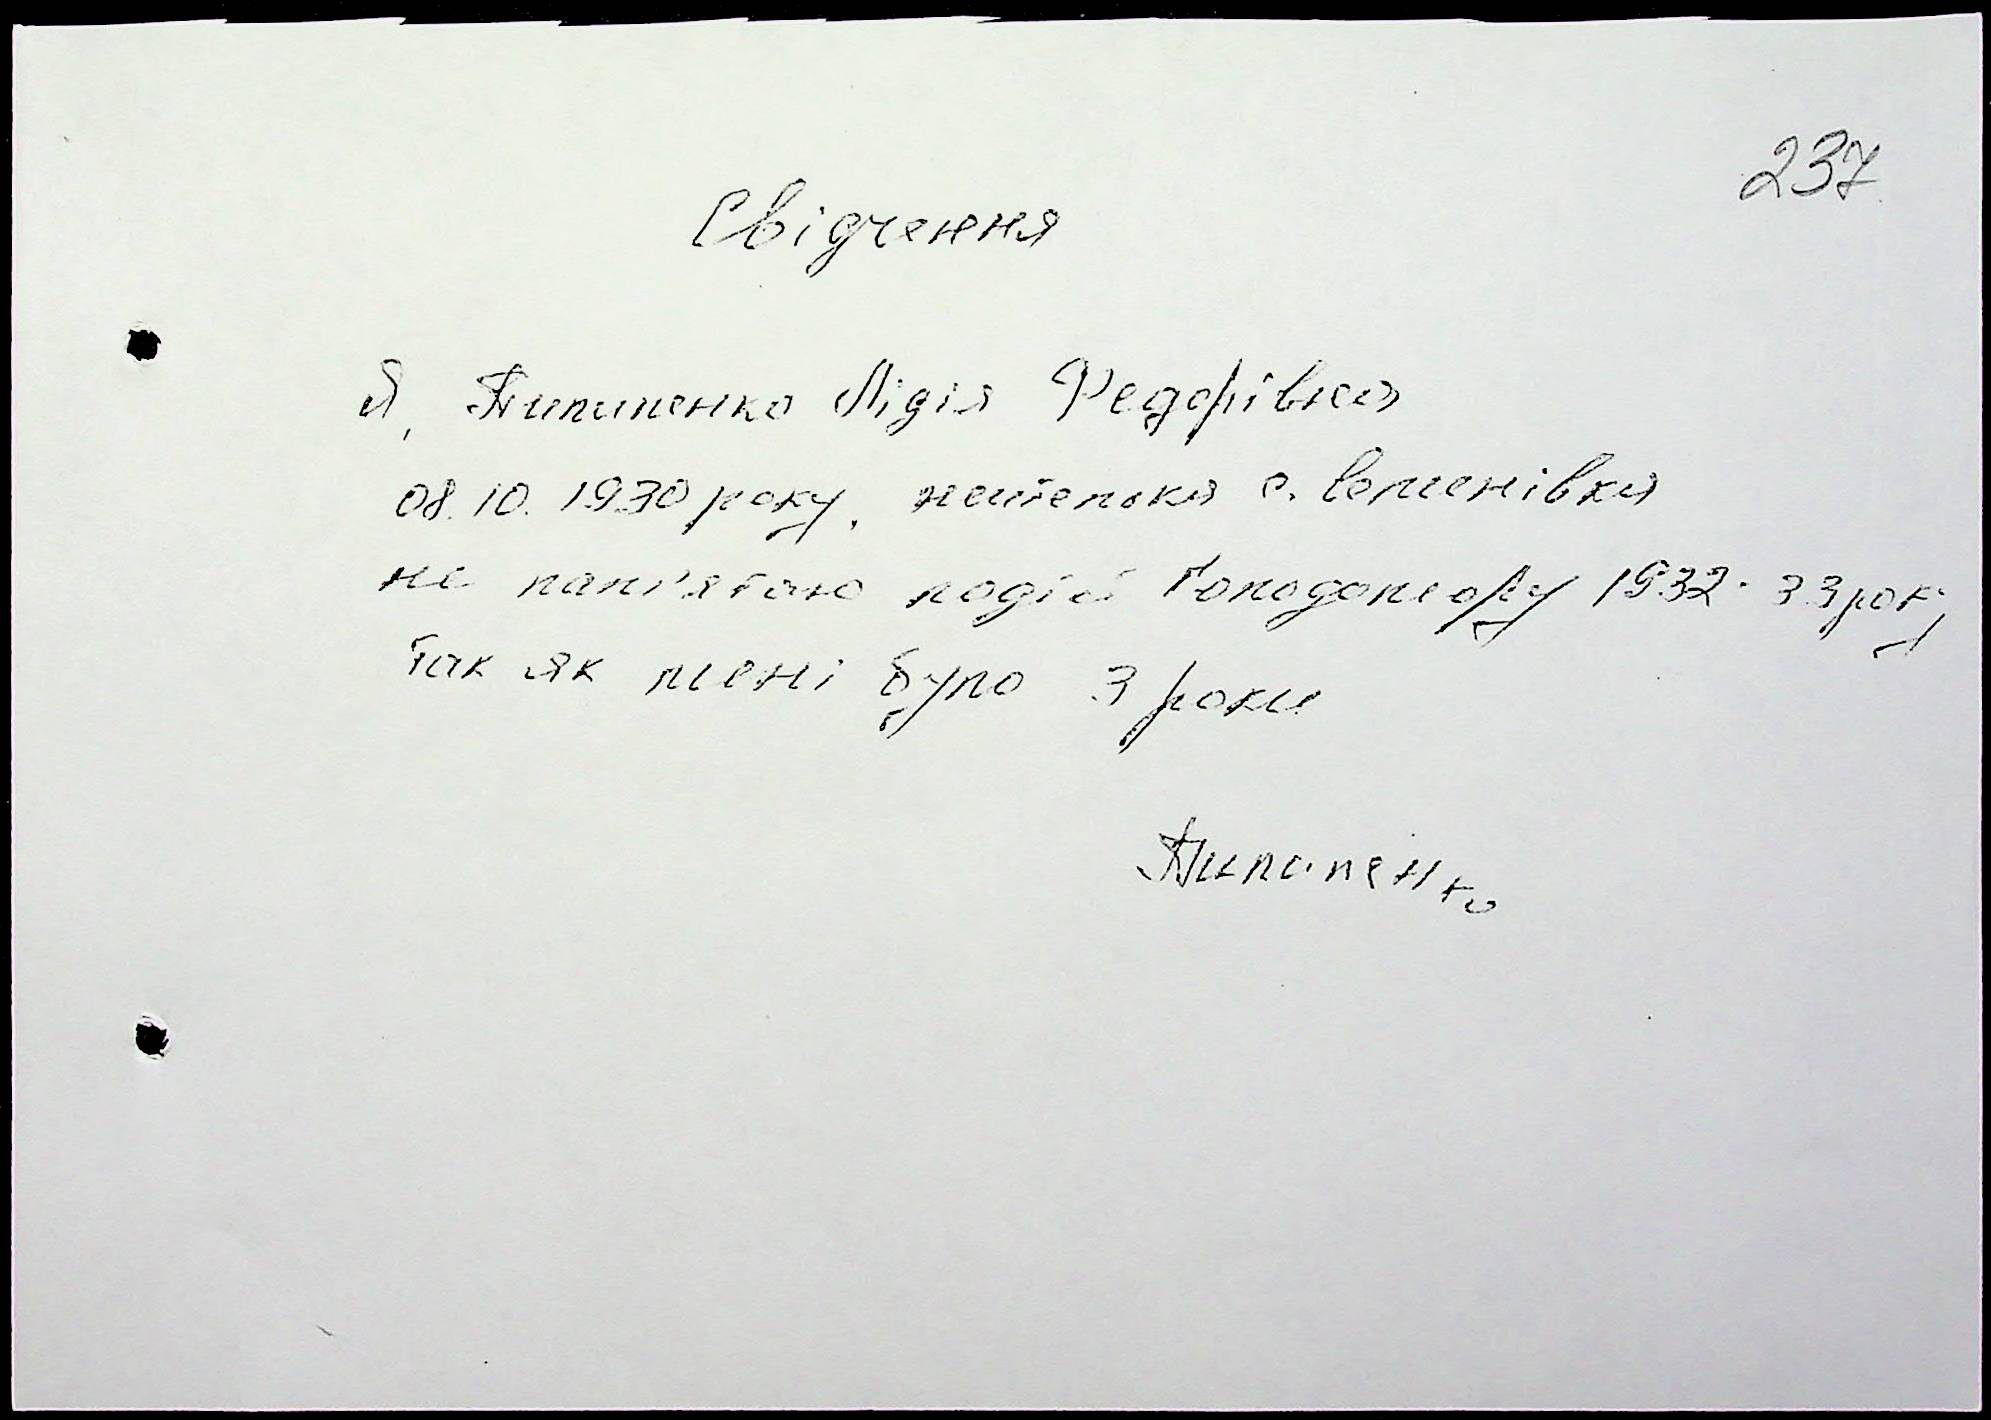 237
Свідчення
Я, Пилипенко Лідія Федорівна
08.10.1930 року, жителька с. Семенівка
не пам'ятаю подій Голодомору 1932-33 року
так як мені було 3 роки
Пилипенко